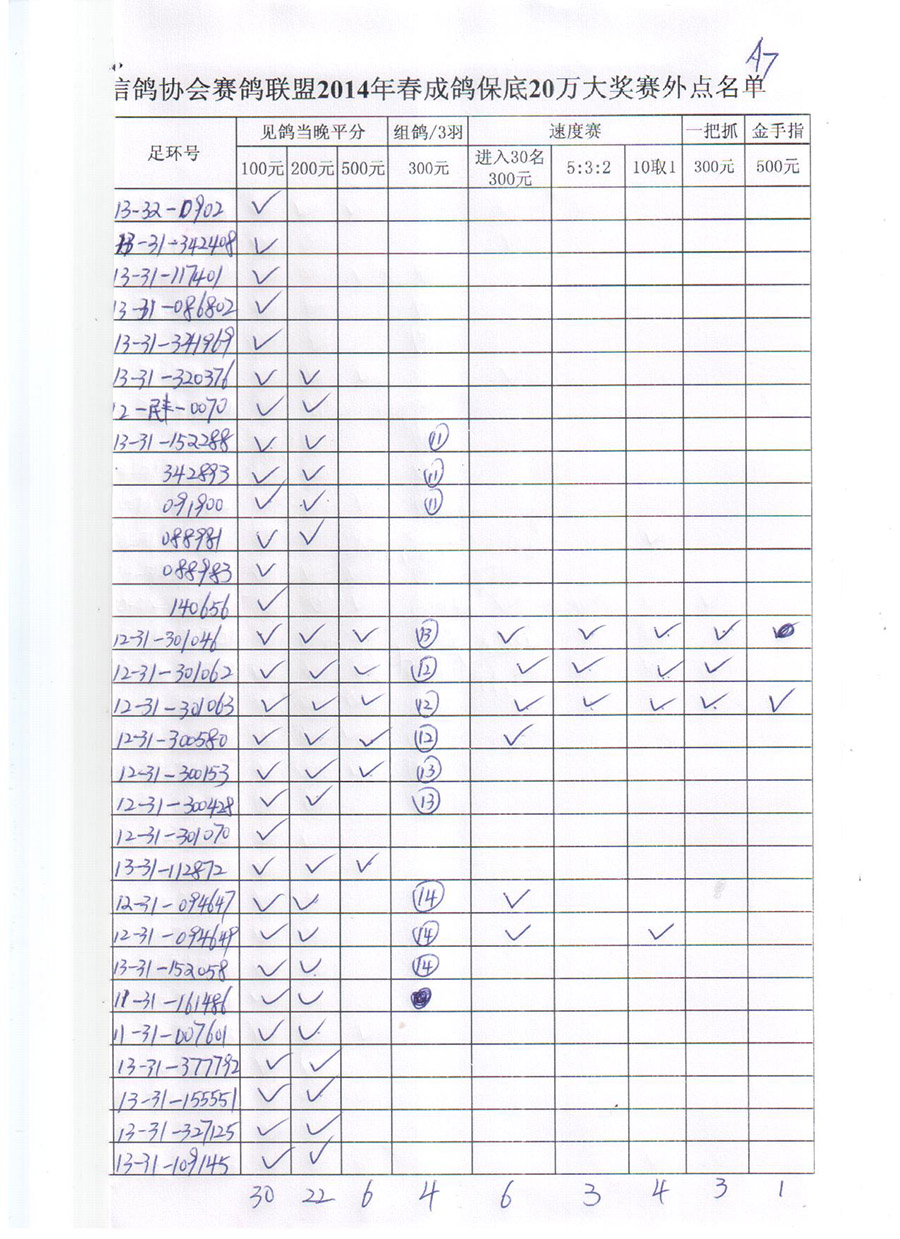 A7
信鸽协会赛鸽联盟2014年春成鸽保底20万大奖赛外点名单
足环号 见鸽当晚平分 组鸽/3羽 速度赛 一把抓 金手指
100元 200元 500元 300元 进入30名300元 5:3:2 10取1 300元 500元
13-32-0902 ✓
13-31-342408 ✓
13-31-117401 ✓
13-31-086802 ✓
13-31-341969 ✓
13-31-320376 ✓ ✓
12-民丰-0070 ✓ ✓
13-31-152288 ✓ ✓ ⑪
342893 ✓ ✓ ⑪
091900 ✓ ✓ ⑪
088981 ✓ ✓
088983 ✓
140656 ✓
12-31-301046 ✓ ✓ ✓ ⑬ ✓ ✓ ✓ ✓
12-31-301062 ✓ ✓ ✓ ⑫ ✓ ✓ ✓ ✓
12-31-301063 ✓ ✓ ✓ ⑫ ✓ ✓ ✓ ✓ ✓
12-31-300580 ✓ ✓ ✓ ⑫ ✓
12-31-300153 ✓ ✓ ✓ ⑬
12-31-300428 ✓ ✓ ⑬
12-31-301070 ✓
13-31-112872 ✓ ✓ ✓
12-31-094647 ✓ ✓ ⑭ ✓
12-31-094649 ✓ ✓ ⑭ ✓ ✓
13-31-152058 ✓ ✓ ⑭
11-31-161486 ✓ ✓
11-31-007601 ✓ ✓
13-31-377792 ✓ ✓
13-31-155551 ✓ ✓
13-31-327125 ✓ ✓
13-31-109145 ✓ ✓
30 22 6 4 6 3 4 3 1